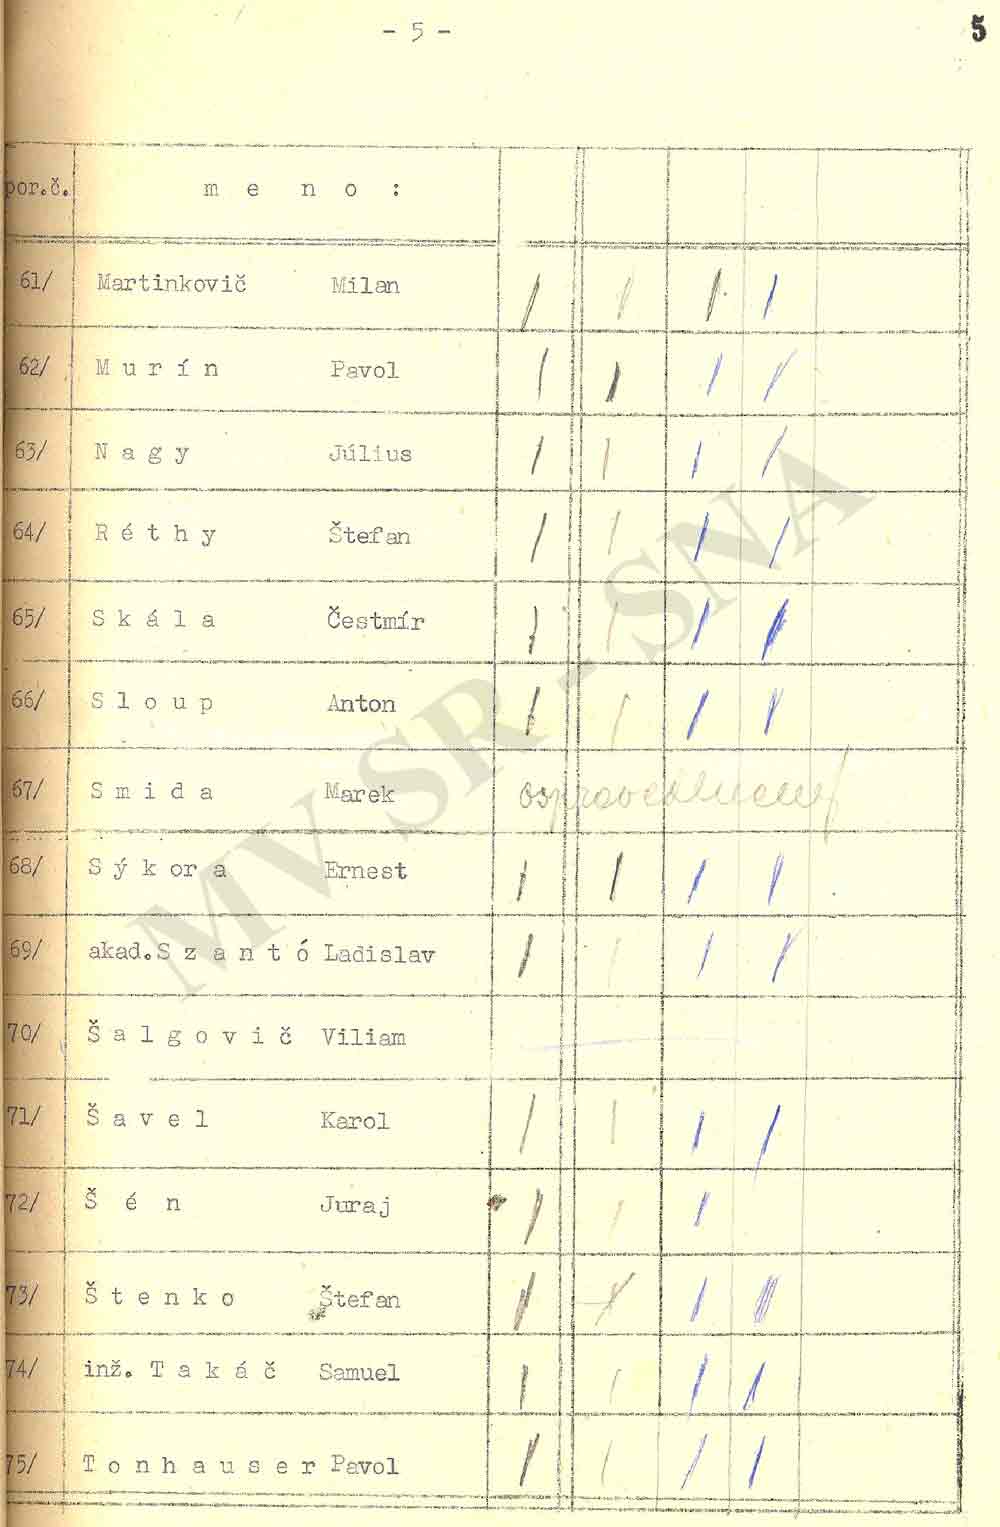 - 5 -
5
por.č. m e n o :
61/ Martinkovič Milan
62/ M u r í n Pavol
63/ N a g y Július
64/ R é t h y Štefan
65/ S k á l a Čestmír
66/ S l o u p Anton
67/ S m i d a Marek
68/ S ý k o r a Ernest
69/ akad. S z a n t ó Ladislav
70/ Š a l g o v i č Viliam
71/ Š a v e l Karol
72/ Š é n Juraj
73/ Š t e n k o Štefan
74/ inž. T a k á č Samuel
75/ T o n h a u s e r Pavol
MV SR - SNA